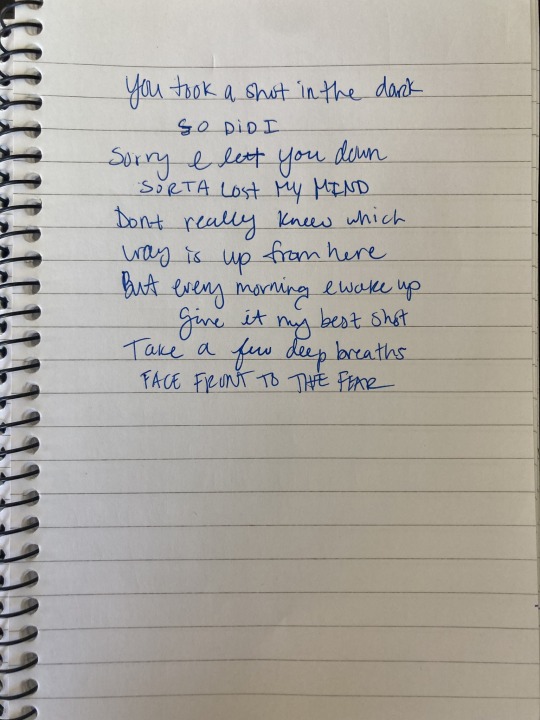 You took a shot in the dark
SO DID I
Sorry I let you down
SORTA LOST MY MIND
Dont really know which
way is up from here
But every morning I wake up
Give it my best shot
Take a few deep breaths
FACE FRONT TO THE FEAR